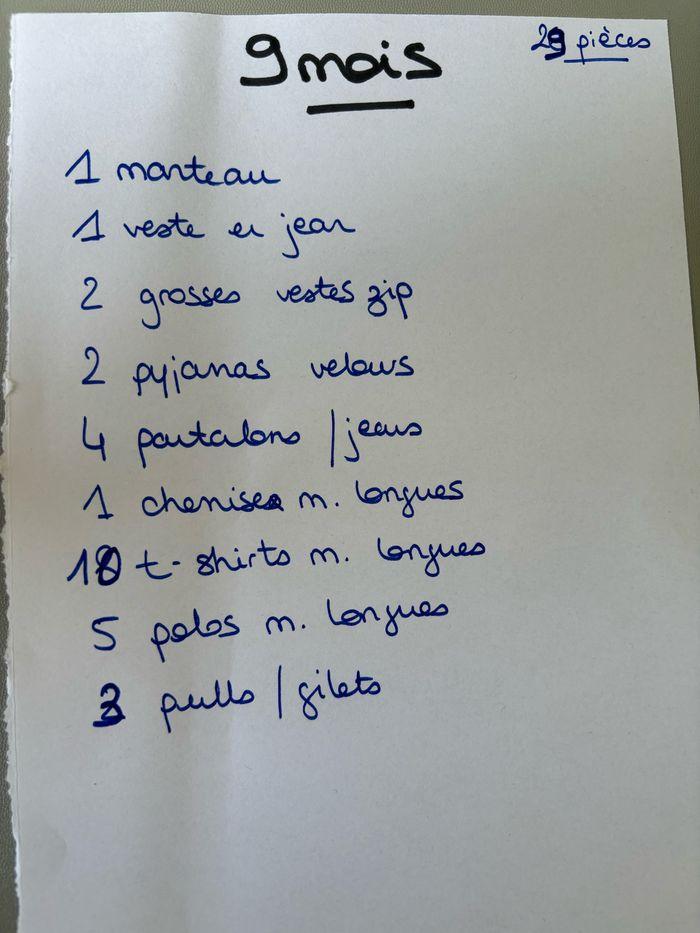 9 mois
29 pièces
1 manteau
1 veste en jean
2 grosses vestes zip
2 pyjamas velours
4 pantalons / jeans
1 chemise m. longues
10 t-shirts m. longues
5 polos m. longues
3 pulls / gilets